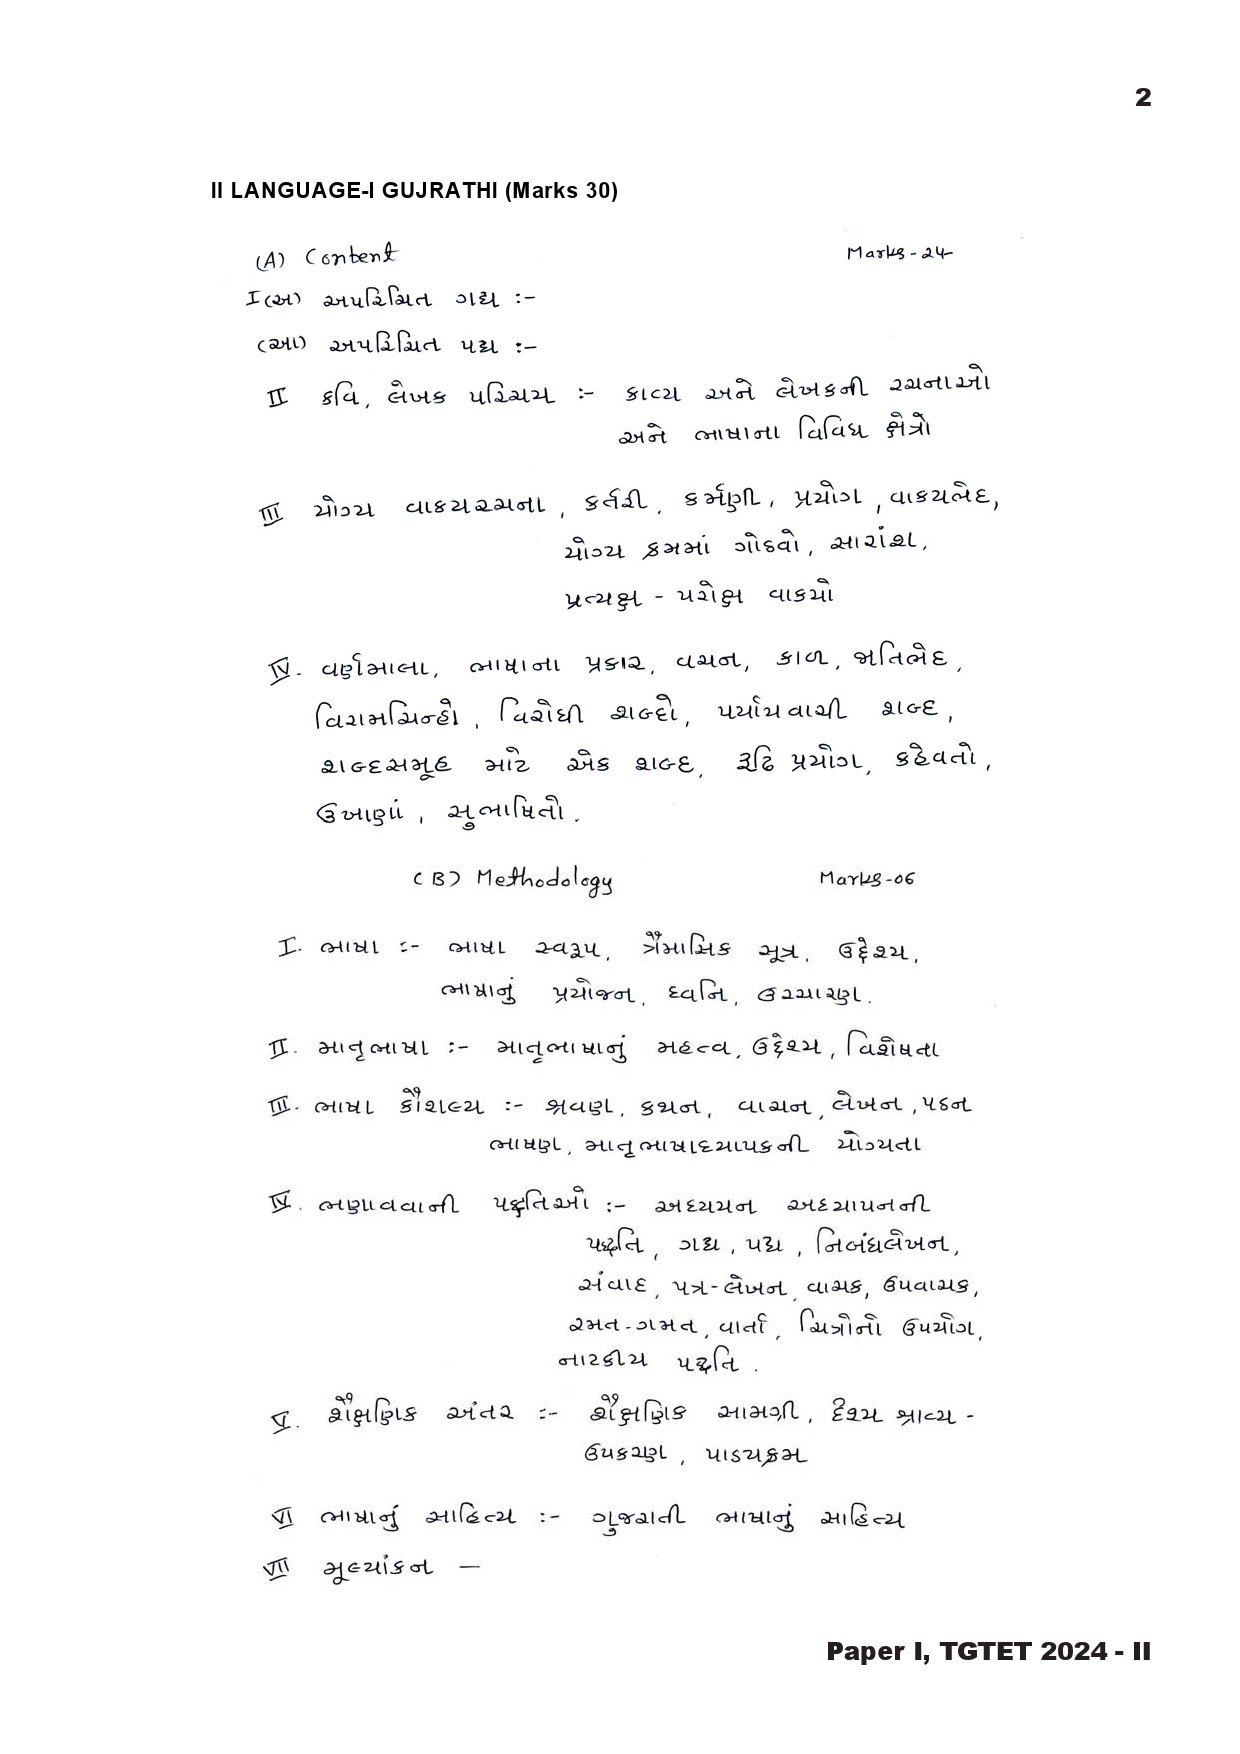 2
II LANGUAGE-I GUJRATHI (Marks 30)
(A) Content Marks-24
I(અ) અપરિચિત ગદ્ય :-
(આ) અપરિચિત પદ્ય :-
II કવિ, લેખક પરિચય :- કાવ્ય અને લેખકની રચનાઓ
અને ભાષાના વિવિધ ક્ષેત્રો
III યોગ્ય વાકયરચના, કર્તરી, કર્મણી, પ્રયોગ, વાકયભેદ,
યોગ્ય ક્રમમાં ગોઠવો, સારાંશ,
પ્રત્યક્ષ - પરોક્ષ વાકયો
IV. વર્ણમાલા, ભાષાના પ્રકાર, વચન, કાળ, જાતિભેદ,
વિરામચિન્હો, વિરોધી શબ્દો, પર્યાયવાચી શબ્દ,
શબ્દસમૂહ માટે એક શબ્દ, રૂઢિ પ્રયોગ, કહેવતો,
ઉખાણાં, સુભાષિતો.
(B) Methodology Marks-06
I. ભાષા :- ભાષા સ્વરૂપ, ત્રૈમાસિક સૂત્ર, ઉદ્દેશ્ય,
ભાષાનું પ્રયોજન, ધ્વનિ, ઉચ્ચારણ.
II. માતૃભાષા :- માતૃભાષાનું મહત્વ, ઉદ્દેશ્ય, વિશેષતા
III. ભાષા કૌશલ્ય :- શ્રવણ, કથન, વાચન, લેખન, પઠન
ભાષણ, માતૃભાષાધ્યાપકની યોગ્યતા
IV. ભણાવવાની પદ્ધતિઓ :- અધ્યયન અધ્યાપનની
પદ્ધતિ, ગદ્ય, પદ્ય, નિબંધલેખન,
સંવાદ, પત્ર-લેખન, વાચક, ઉપવાચક,
રમત-ગમત, વાર્તા, ચિત્રોનો ઉપયોગ,
નાટકીય પદ્ધતિ.
V. શૈક્ષણિક અંતર :- શૈક્ષણિક સામગ્રી, દૃશ્ય શ્રાવ્ય -
ઉપકરણ, પાઠયક્રમ
VI ભાષાનું સાહિત્ય :- ગુજરાતી ભાષાનું સાહિત્ય
VII મૂલ્યાંકન —
Paper I, TGTET 2024 - II